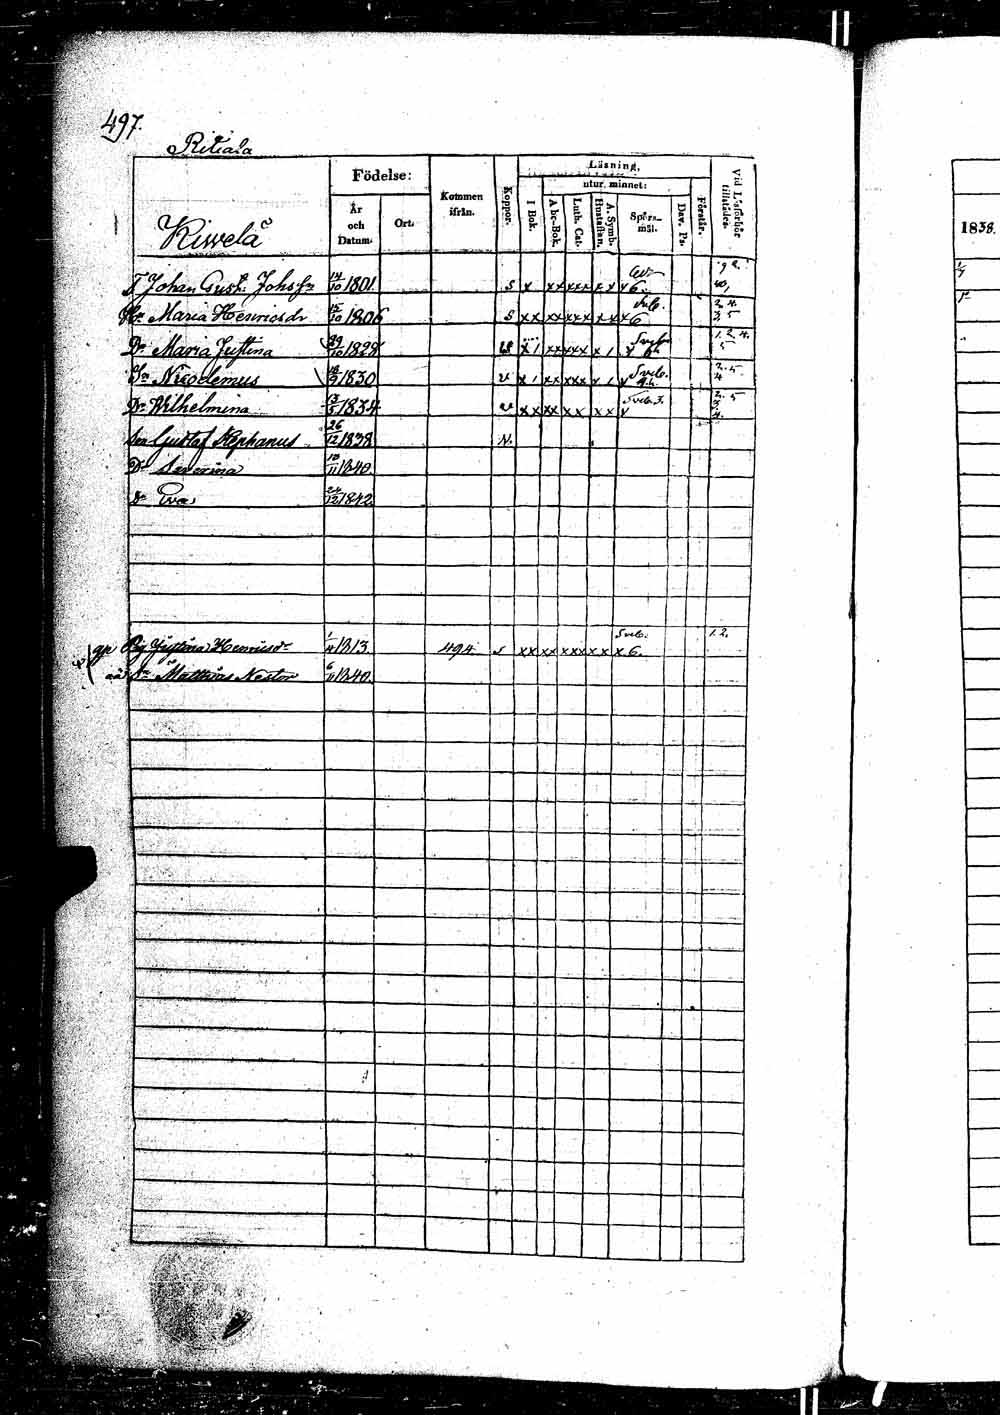 497.
Ritiala
Kiwelä
Födelse:
År och Datum.
Ort.
Kommen ifrån.
Koppor.
Läsning,
utur minnet:
I Bok.
Abc-Bok.
Luth. Cat.
A. Symb. Hustaflan.
Spörs-mål.
Dav. Ps.
Förstår.
Vid Läsförhör tillstädes.
1838.
T Johan Gust. Johsson 14/10 1801 s x xx xxx x x x 6.
Hu Maria Henricsdr 15/10 1806 s xx xx xxx x x x 6 Sveb. 2. 4. 3. 5
Dr Maria Justina 29/10 1828 x 1 xx xxx x 1 Sveb. 1. 2. 4. 5
Sn Nicodemus 16/9 1830 v x 1 xx xxx x 1 Sveb. 2. 5 4
Dr Wilhelmina 13/5 1834 v xx xx xx xx Sveb. 3. 2. 5 3. 4.
Son Gustaf Stephanus 26/12 1838 N.
Dr Severina 10/11 1840.
Dr Eva 24/12 1842.
Pig Justina Henricsdr 1/4 1813 494. s xx xx xxx x x x 6. Sveb. 1. 2.
Sn Matthias Nestor 6/11 1840.